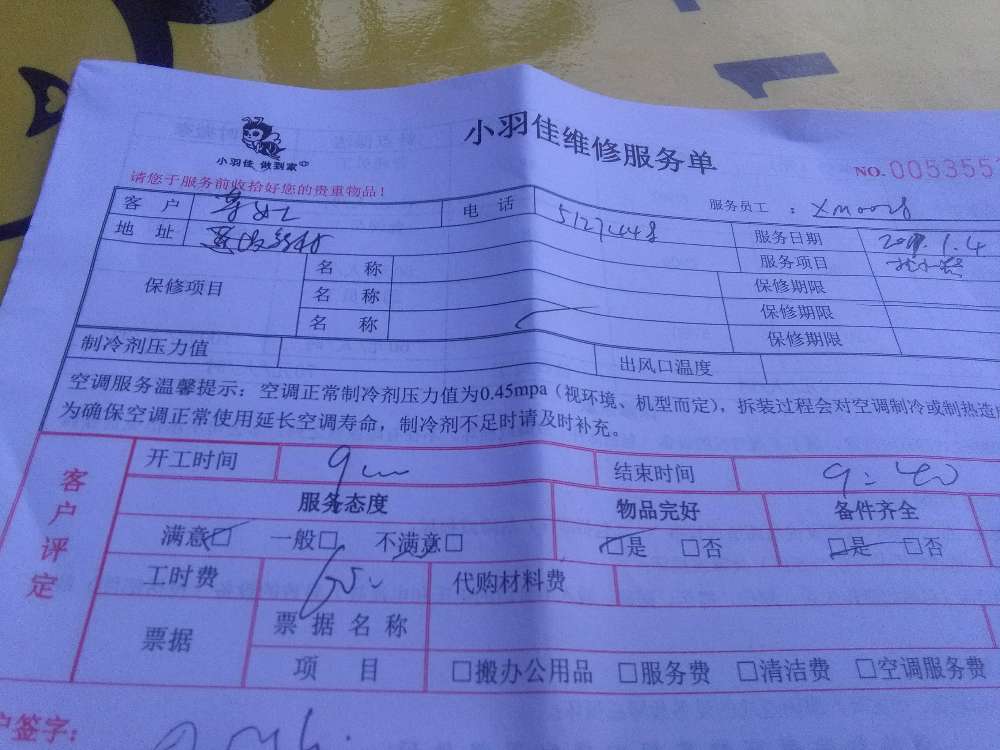 小羽佳维修服务单
小羽佳 做到家
NO.0053555
请您于服务前收拾好您的贵重物品！
服务员工：
客 户 电 话 5127448
地 址 服务日期 1.4
服务项目
保修项目 名 称 保修期限
名 称 保修期限
名 称 保修期限
制冷剂压力值 出风口温度
空调服务温馨提示：空调正常制冷剂压力值为0.45mpa（视环境、机型而定），拆装过程会对空调制冷或制热造
为确保空调正常使用延长空调寿命，制冷剂不足时请及时补充。
客户评定
开工时间 9 结束时间 9:40
服务态度 物品完好 备件齐全
满意□ 一般□ 不满意□ □是 □否 □是 □否
工时费 代购材料费
票据 票据名称
项 目 □搬办公用品 □服务费 □清洁费 □空调服务费
户签字：